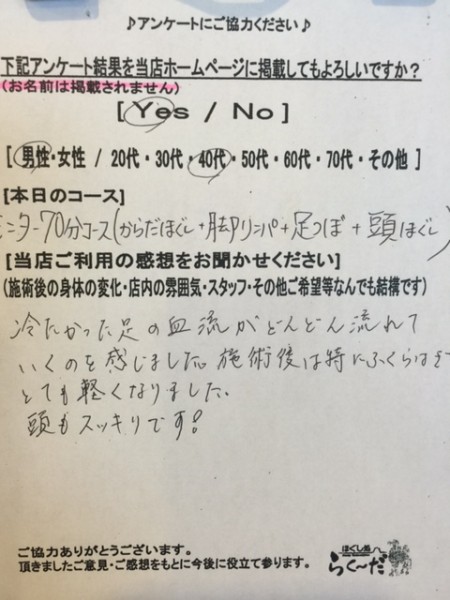 ♪アンケートにご協力ください♪
下記アンケート結果を当店ホームページに掲載してもよろしいですか？
(お名前は掲載されません)
[ Yes / No ]
[ 男性・女性 / 20代・30代・40代・50代・60代・70代・その他 ]
[本日のコース]
ニター70分コース(からだほぐし+脚リンパ+足つぼ+頭ほぐし)
[当店ご利用の感想をお聞かせください]
(施術後の身体の変化・店内の雰囲気・スタッフ・その他ご希望等なんでも結構です)
冷たかった足の血流がどんどん流れて
いくのを感じました。施術後は特にふくらはぎ
とても軽くなりました。
頭もスッキリです!
ご協力ありがとうございます。
頂きましたご意見・ご感想をもとに今後に役立て参ります。
ほぐし処
らく〜だ